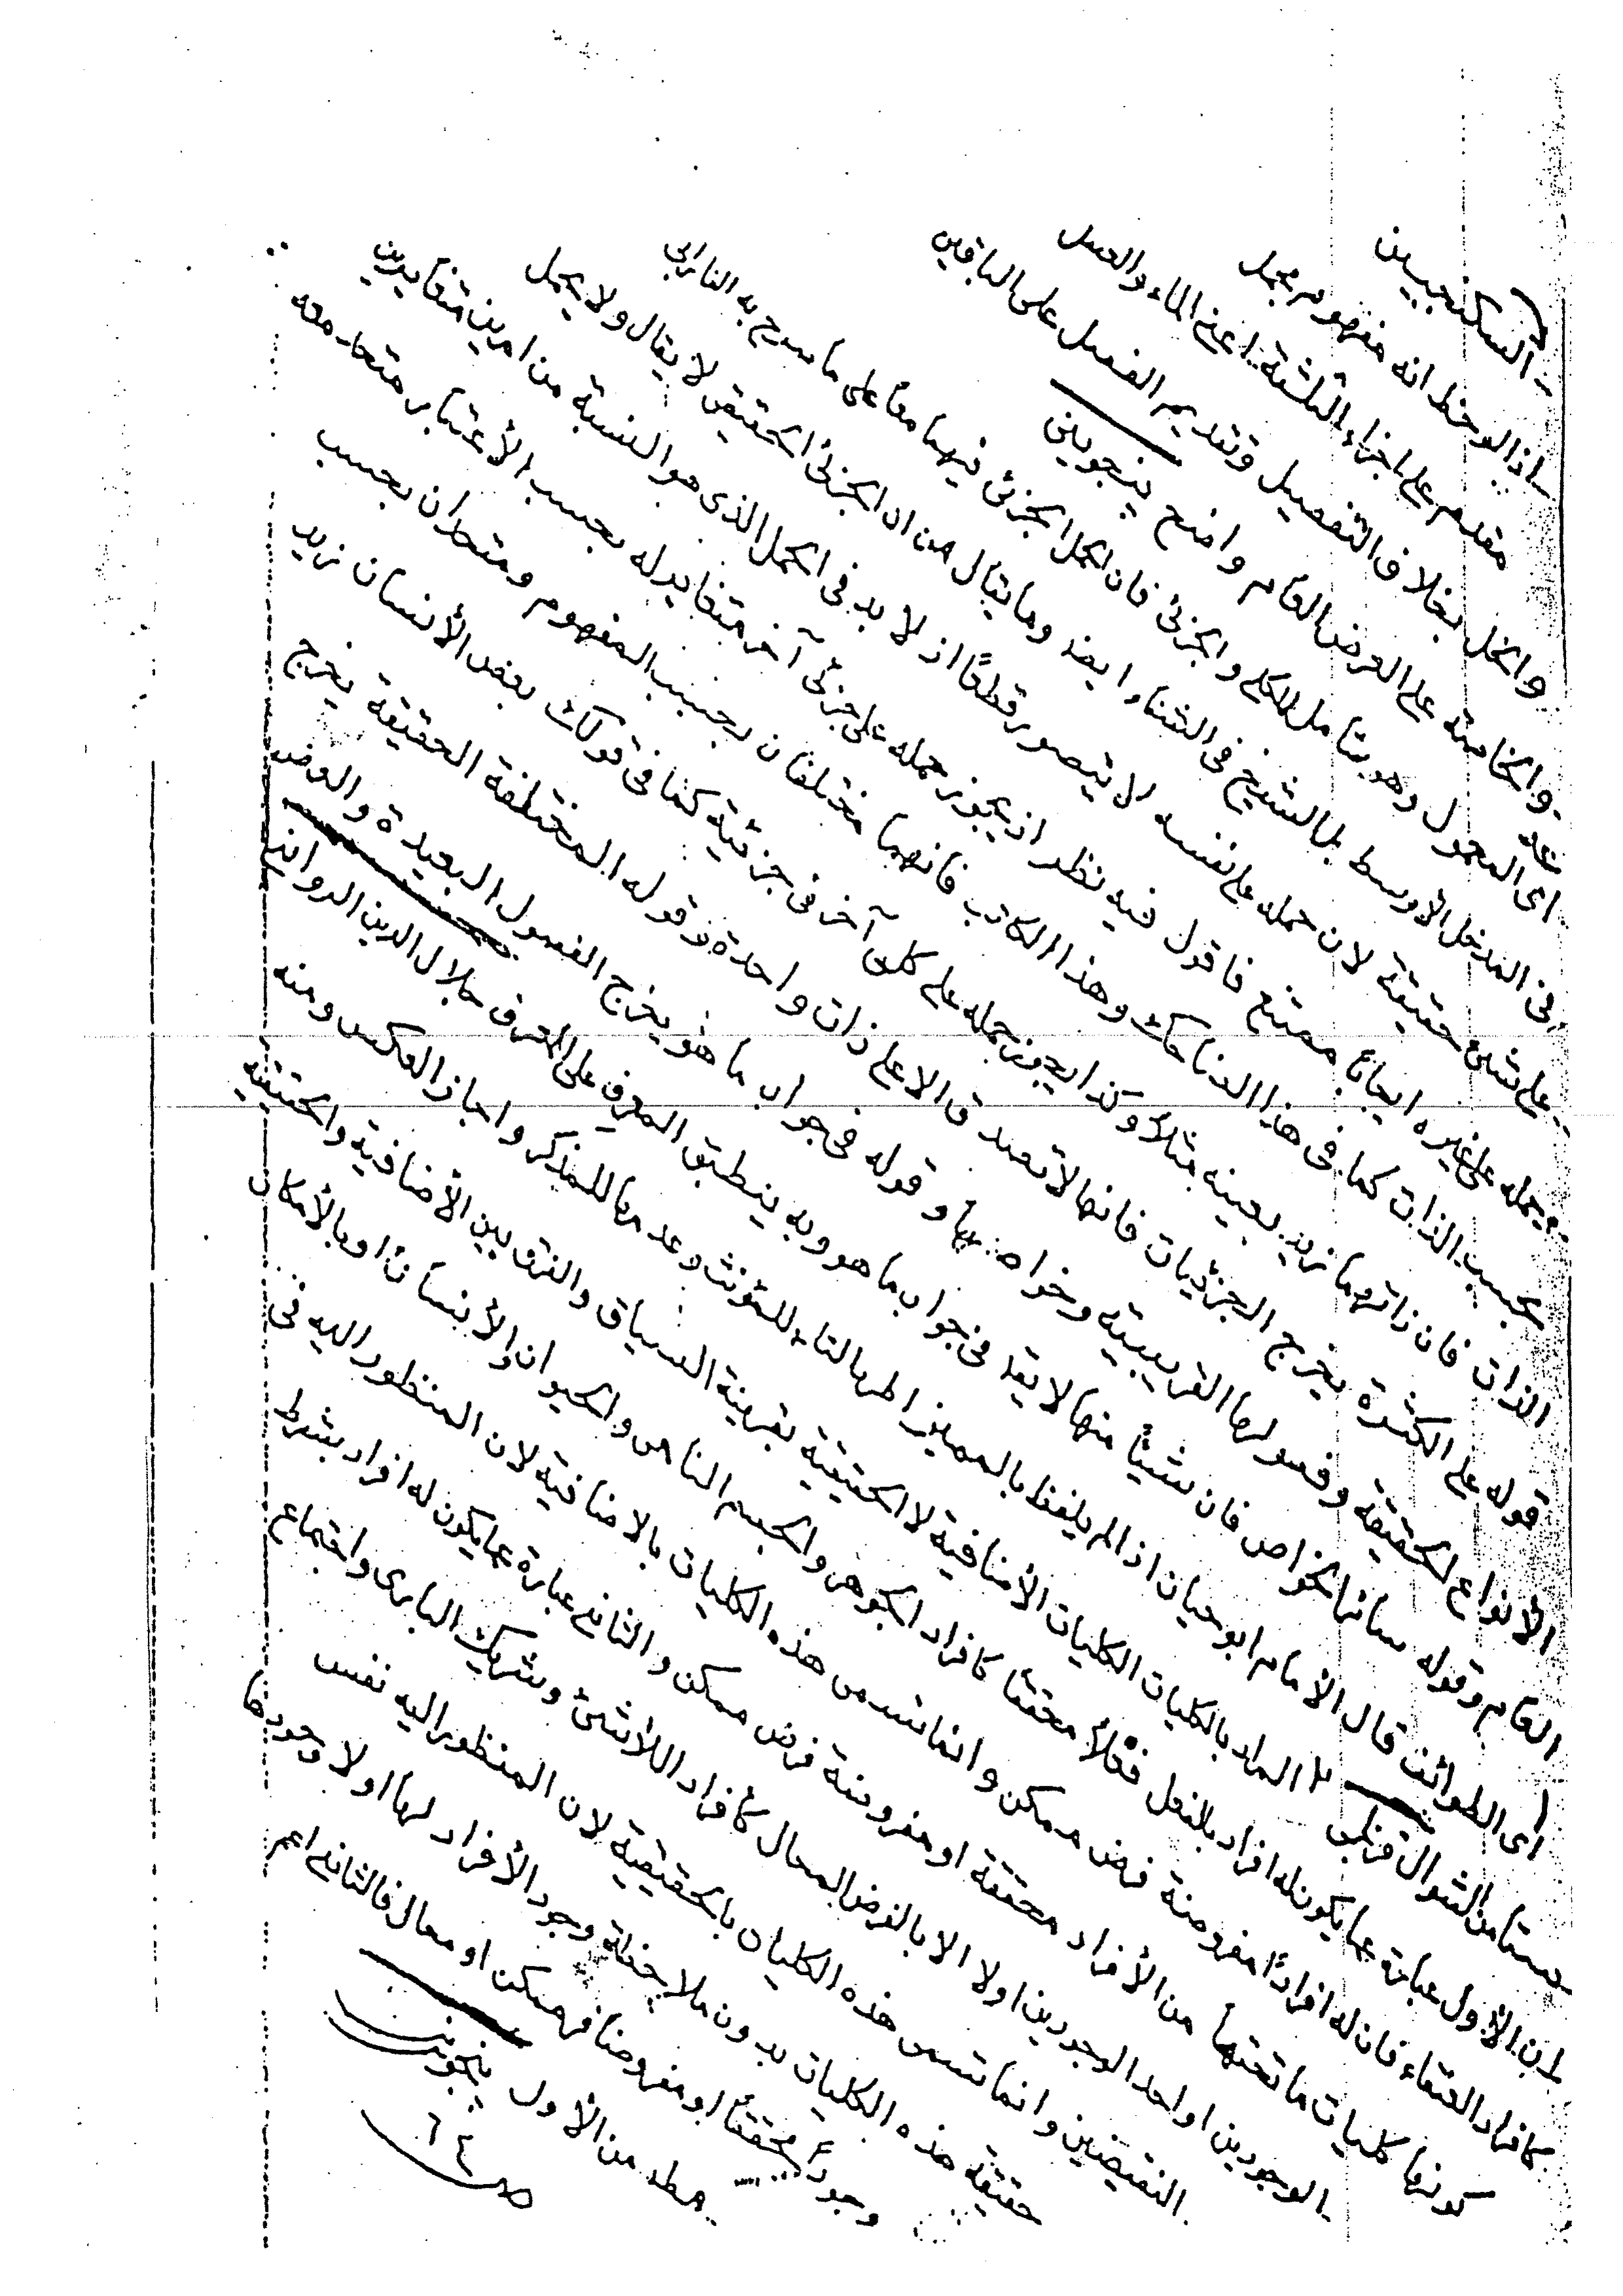 السكنجبين
اذا لوحظ انه مفهوم مجمل
مقدم على اجزاء الثلثة اعنى الماء والعسل
والخل بخلاف التفصيل وتقديم الفصل على الباقين
والخاصة على العرض العام واضح ينجوينى
عه اى المحمول وهو شامل للكلى والجزئى فان الحمل الجزئى فيهما معا على ما صرح به الفارابى
فى المدخل الأوسط بل الشيخ فى الشفاء ايضا وما يقال من ان الجزئى الحقيقى لا يقال ولا يحمل
على شئ حقيقة لان حمله على نفسه لا يتصور قطعًا اذ لا بد فى الحمل الذى هو النسبة من امرين متغايرين
وحمله على غيره ايجابًا ممتنع فاقول فيه نظر اذ يجوز حمله على جزئى آخر متغاير له بحسب الأعتبار متحد معه
بحسب الذات كما فى هذا الضاحك وهذا الكاتب فانهما مختلفان بحسب المفهوم ومتحدان بحسب
الذات فان ذاتهما زيد بعينه مثلاً وكذا يجوز حمله على كلى آخر فى جزئية كما فى قولك بعض الأنسان زيد
قوله على الكثرة يخرج الجزئيات فانها لا تصدق الا على ذات واحدة وقوله المختلفة الحقيقة يخرج
الأنواع الحقيقة وفصولها القريبة وخواصها وقوله فى جواب ما هو يخرج الفصول البعيدة والعرض
العام وقوله سائر الخواص فان شيئًا منها لا يقع فى جواب ما هو وبه ينطبق المعرف على المعرف جلال الدين الدوانى
اى الطوائف قال الأمام ابو حيان اذا لم يلفظ بالمميز بالتاء للمؤنث وعدمها للمذكر واجاز العكس ومنه
ستا من الشوال قزلجى ٢ المراد بالكليات الكليات الأضافية لا الحقيقية بقرينة السياق والفرق بين الأضافية والحقيقيه
ان الأول عبارة عما يكون له افراد بالفعل فعلاً محققا كافراد الجوهر والجسم النامى والحيوان والأنسان او بالأمكان
كافراد العنقاء فان له افرادًا مفروضة فرض ممكن وانما تسمى هذه الكليات بالاضافية لان المنظور اليه فى
كونها كليات ما تحتها من الأفراد محققة او مفروضة فرض ممكن والثانى عبارة عما يكون له افراد بشرط
الوجودين او احد الوجودين اولا الا بالفرض المحال كأفراد اللاشئ وشريك البارى واجتماع
النقيضين وانما تسمى هذه الكليات بالحقيقية لان المنظور اليه نفس
حقيقة هذه الكليات بدون ملاحظة وجود الأفراد لها اولا وجودها
وجودًا محققًا او مفروضا فرض ممكن او محال فالثانى اعم
مطلقا من الأول ينجوينى
ص ٦٤